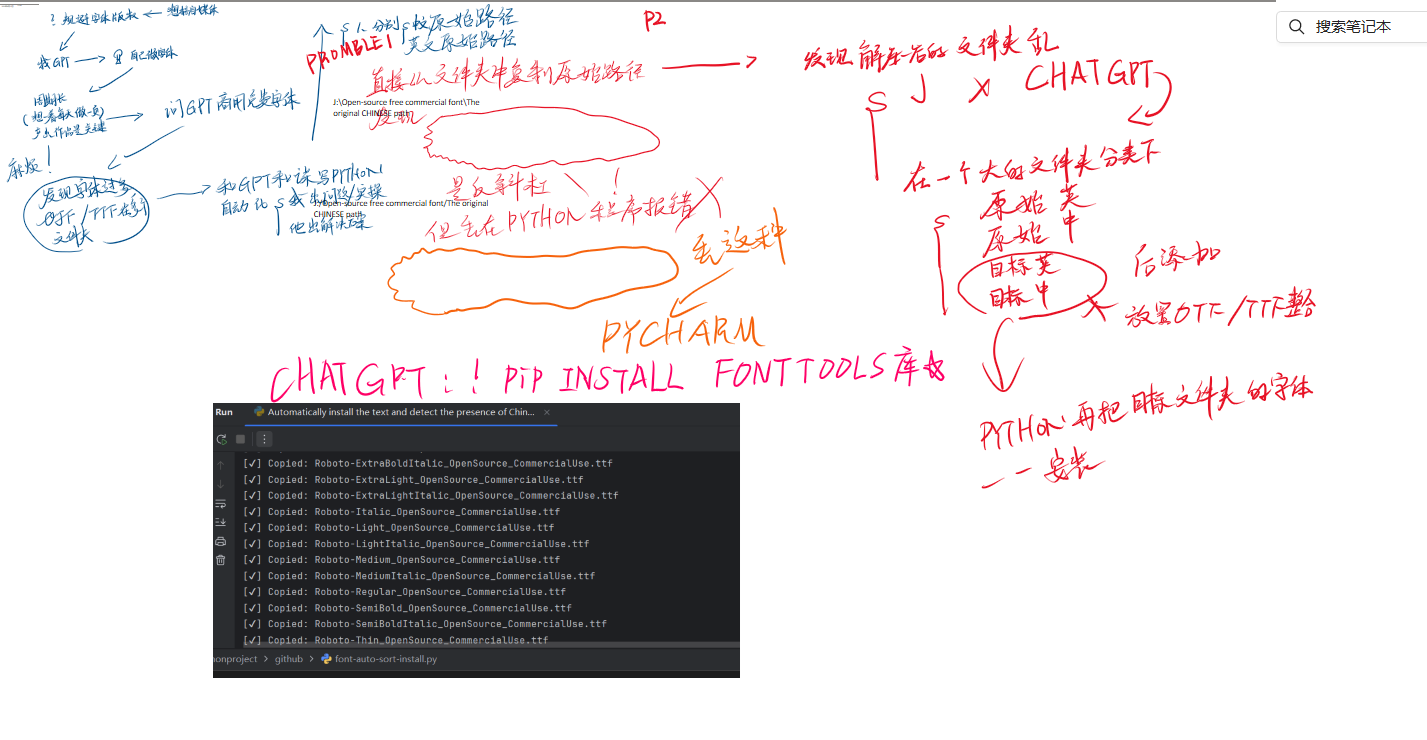 搜索笔记本
? 规避字体版权 ← 想搞自媒体
找GPT → 自己做字体
周期长
(想着每天做一点)
产出作品是关键
→ 问GPT商用免费字体
麻烦!
发现字体过多
OTF/TTF在多个
文件夹
→ 和GPT和谋写PYTHON
自动化 S 我出问题/实操
他出解决方案
S 分别 S 找原始路径
英文原始路径
PROMBLE1
直接从文件夹中复制原始路径
J:\Open-source free commercial font\The
original CHINESE path
发现
是反斜杠 \ !
J:/Open-source free commercial font/The original
CHINESE path
但是在PYTHON程序报错 X
是这种
PYCHARM
P2
发现解压后的文件夹乱
S J X CHATGPT
在一个大的文件夹分类下
S 原始英
原始中
目标英
目标中
后添加
放置OTF/TTF整合
PYTHON再把目标文件夹的字体
一一安装
CHATGPT:! PIP INSTALL FONTTOOLS库
Run
Automatically install the text and detect the presence of Chin...
[✓] Copied: Roboto-ExtraBoldItalic_OpenSource_CommercialUse.ttf
[✓] Copied: Roboto-ExtraLight_OpenSource_CommercialUse.ttf
[✓] Copied: Roboto-ExtraLightItalic_OpenSource_CommercialUse.ttf
[✓] Copied: Roboto-Italic_OpenSource_CommercialUse.ttf
[✓] Copied: Roboto-Light_OpenSource_CommercialUse.ttf
[✓] Copied: Roboto-LightItalic_OpenSource_CommercialUse.ttf
[✓] Copied: Roboto-Medium_OpenSource_CommercialUse.ttf
[✓] Copied: Roboto-MediumItalic_OpenSource_CommercialUse.ttf
[✓] Copied: Roboto-Regular_OpenSource_CommercialUse.ttf
[✓] Copied: Roboto-SemiBold_OpenSource_CommercialUse.ttf
[✓] Copied: Roboto-SemiBoldItalic_OpenSource_CommercialUse.ttf
[✓] Copied: Roboto-Thin_OpenSource_CommercialUse.ttf
onproject > github > font-auto-sort-install.py